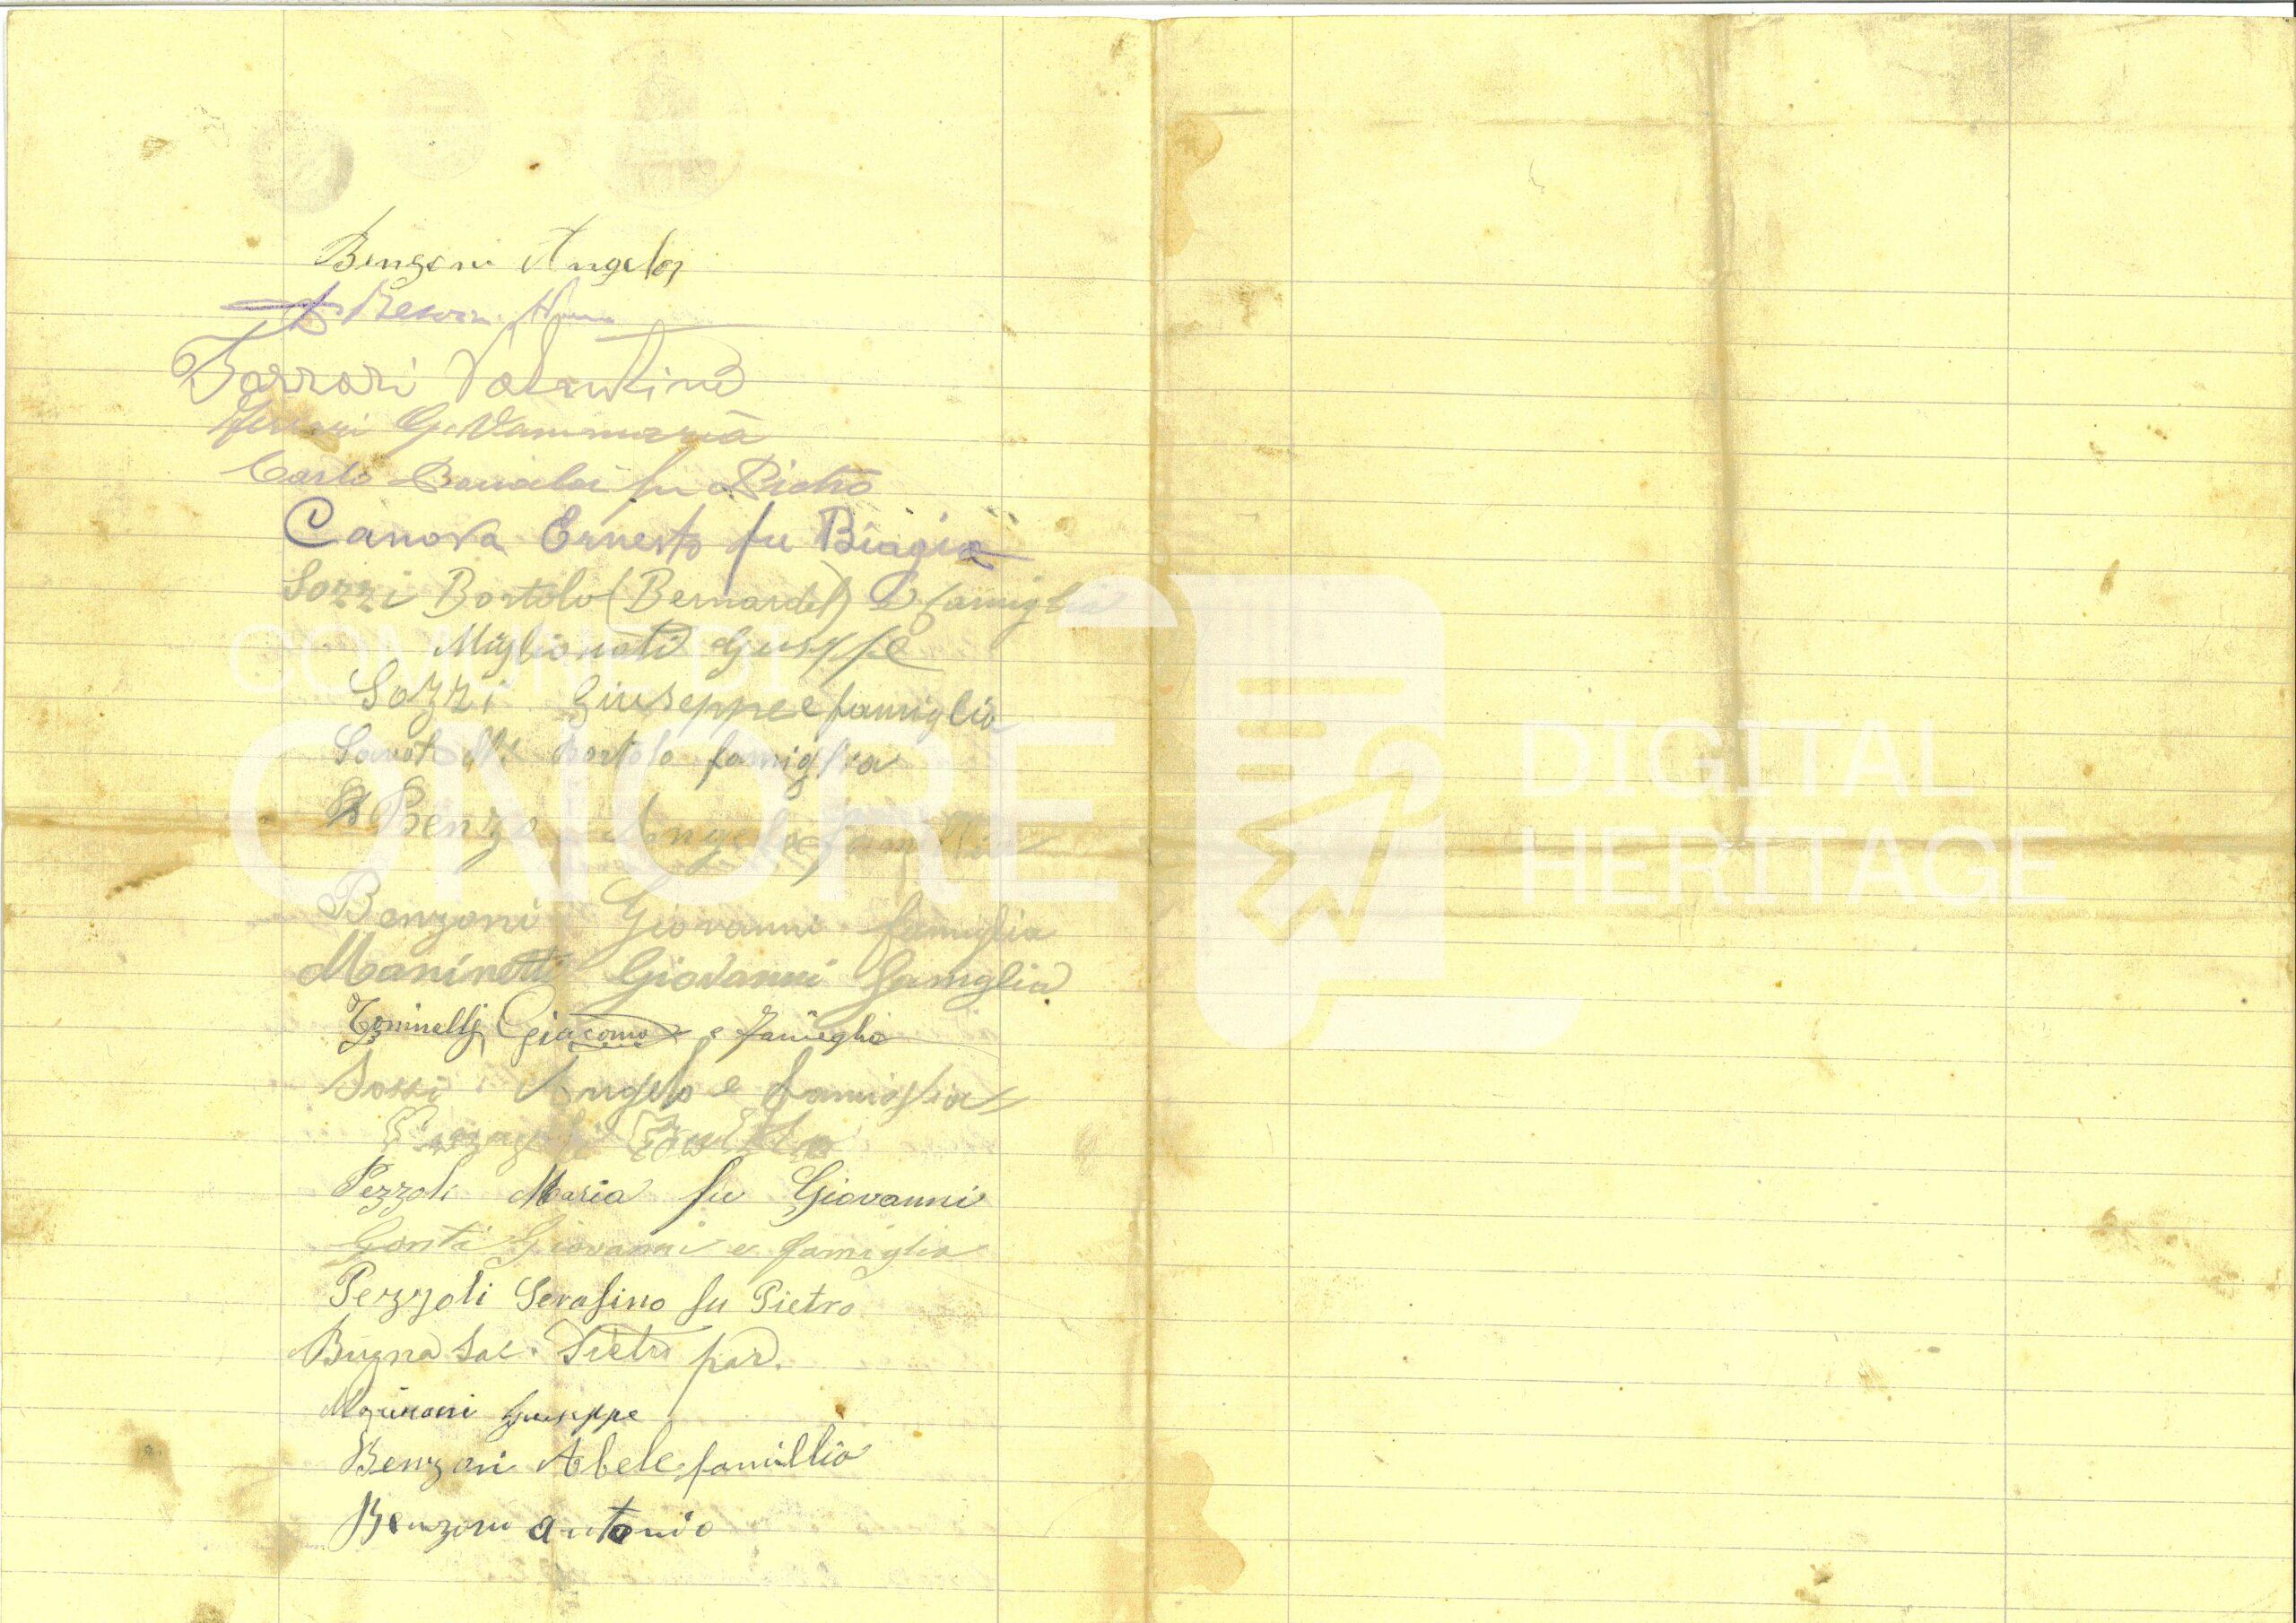 Benzoni Angelo
Ferrari Valentino
Ferrari G. Vanmaria
Carlo fu Pietro
Canova Ernesto fu Biagio
Sozzi Bortolo (Bernardel) e famiglia
Migliorati Giuseppe
Sozzi Giuseppe e famiglia
Bortolo famiglia
Angelo e famiglia
Benzoni Giovanni famiglia
Maninetti Giovanni famiglia
Giacomo e famiglia
Angelo e famiglia
Pezzoli Maria fu Giovanni
Conti Giovanni e famiglia
Pezzoli Serafino fu Pietro
Bugna Sac. Pietro par.
Giuseppe
Benzoni Abele famillia
Benzoni antonio
COMUNE DI
ONORE
DIGITAL
HERITAGE